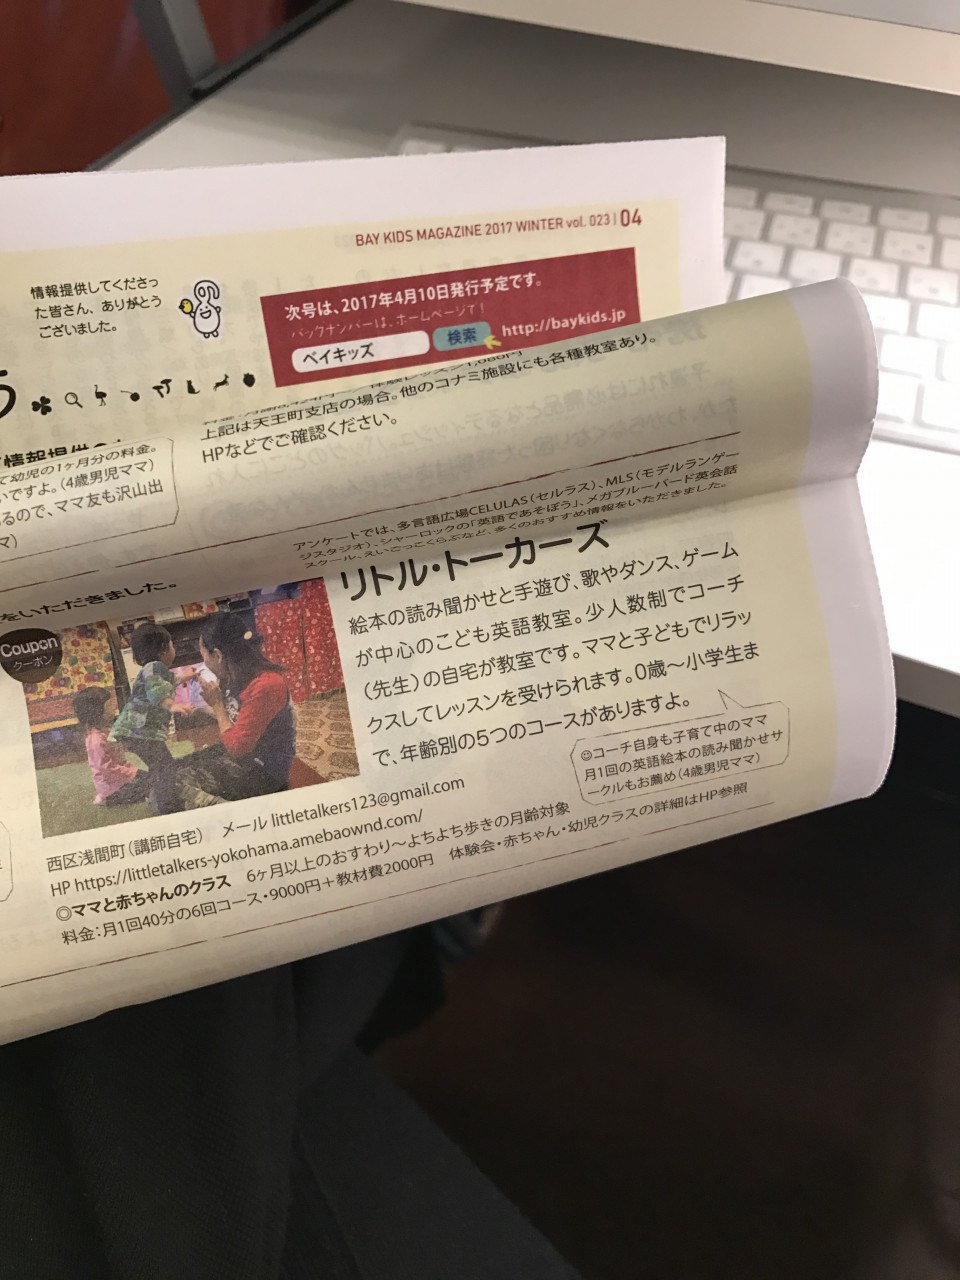 BAY KIDS MAGAZINE 2017 WINTER vol. 023 | 04
情報提供してくださっ
た皆さん、ありがとう
ございました。
次号は、2017年4月10日発行予定です。
バックナンバーは、ホームページで!
ベイキッズ 検索 http://baykids.jp
上記は天王町支店の場合。他のコナミ施設にも各種教室あり。
HPなどでご確認ください。
情報提供
て幼児の1ヶ月分の料金。
いですよ。(4歳男児ママ)
るので、ママ友も沢山出
マ)
をいただきました。
アンケートでは、多言語広場CELULAS(セルラス)、MLS(モデルランゲー
ジスタジオ)、シャーロックの「英語であそぼう」、メガブルーバード英会話
スクール、えいごっこくらぶなど、多くのおすすめ情報をいただきました。
リトル・トーカーズ
絵本の読み聞かせと手遊び、歌やダンス、ゲーム
が中心のこども英語教室。少人数制でコーチ
(先生)の自宅が教室です。ママと子どもでリラッ
クスしてレッスンを受けられます。0歳〜小学生ま
で、年齢別の5つのコースがありますよ。
Coupon
クーポン
◎コーチ自身も子育て中のママ
月1回の英語絵本の読み聞かせサ
ークルもお薦め(4歳男児ママ)
西区浅間町(講師自宅) メール littletalkers123@gmail.com
HP https://littletalkers-yokohama.amebaownd.com/
◎ママと赤ちゃんのクラス 6ヶ月以上のおすわり〜よちよち歩きの月齢対象
料金:月1回40分の6回コース・9000円+教材費2000円 体験会・赤ちゃん・幼児クラスの詳細はHP参照